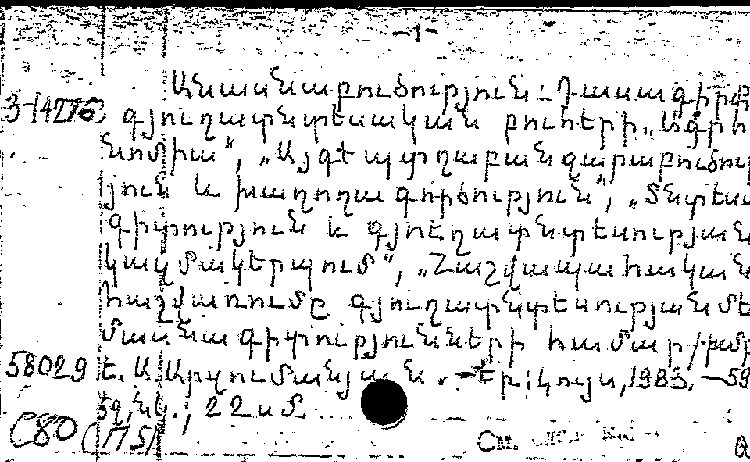 -1-
Անասնաբուծություն: Դասագիրք
3-14276 գյուղատնտեսական բուհերի „Ագրո
նոմիա“, „Այգեպտղաբանջարաբուծու
յուն և խաղողագործություն“, „Տնտեսա
գիտություն և գյուղատնտեսության
կազմակերպում“, „Հաշվապահական
հաշվառումը գյուղատնտեսության մե
մասնագիտությունների համար /
58029 է. Ա. Արզումանյան. – Եր.: Լույս, 1983. – 59
նկ., 22 սմ.
C80
См.